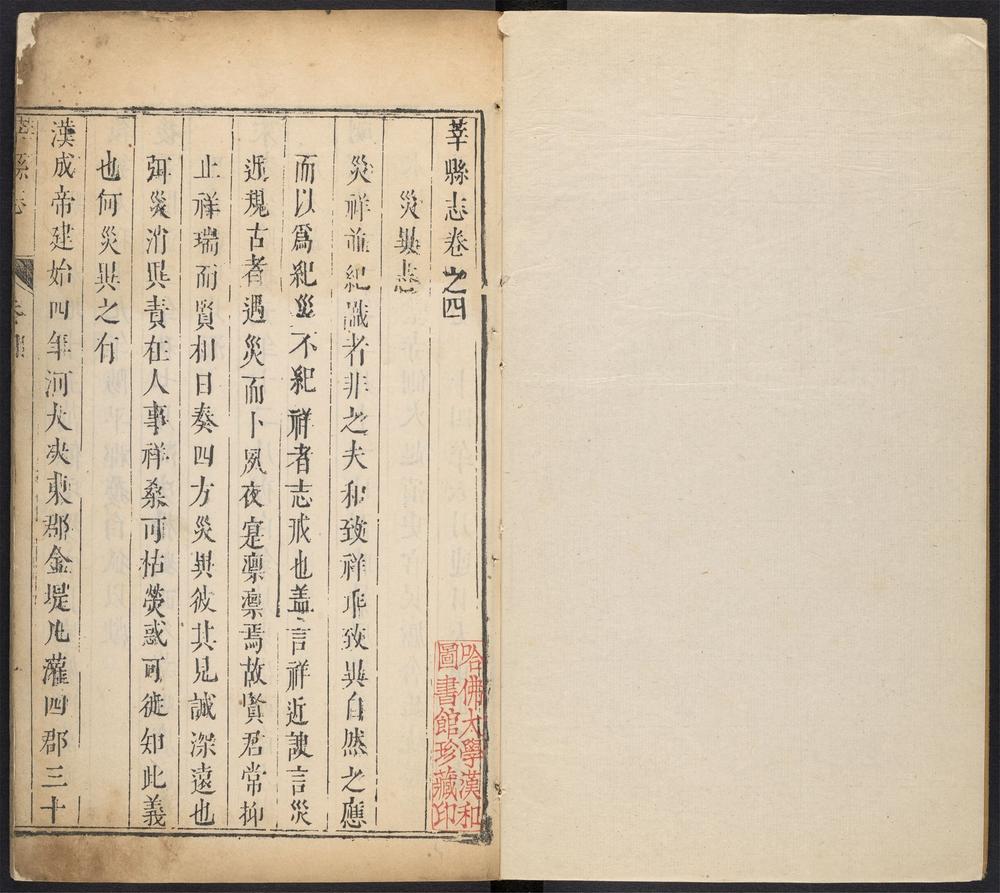 莘縣志卷之四
災異志
災祥並紀識者非之夫和致祥乖致異自然之應
而以爲紀災不紀祥者志戒也蓋言祥近諛言災
近規古者遇災而卜夙夜寔凛凛焉故賢君常抑
止祥瑞而賢相日奏四方災異彼其見誠深遠也
弭災消異責在人事祥桑可枯熒惑可徙知此義
也何災異之有
漢成帝建始四年河大决東郡金堤凡灌四郡三十
莘縣志
卷四
哈佛大學漢和
圖書館珍藏印